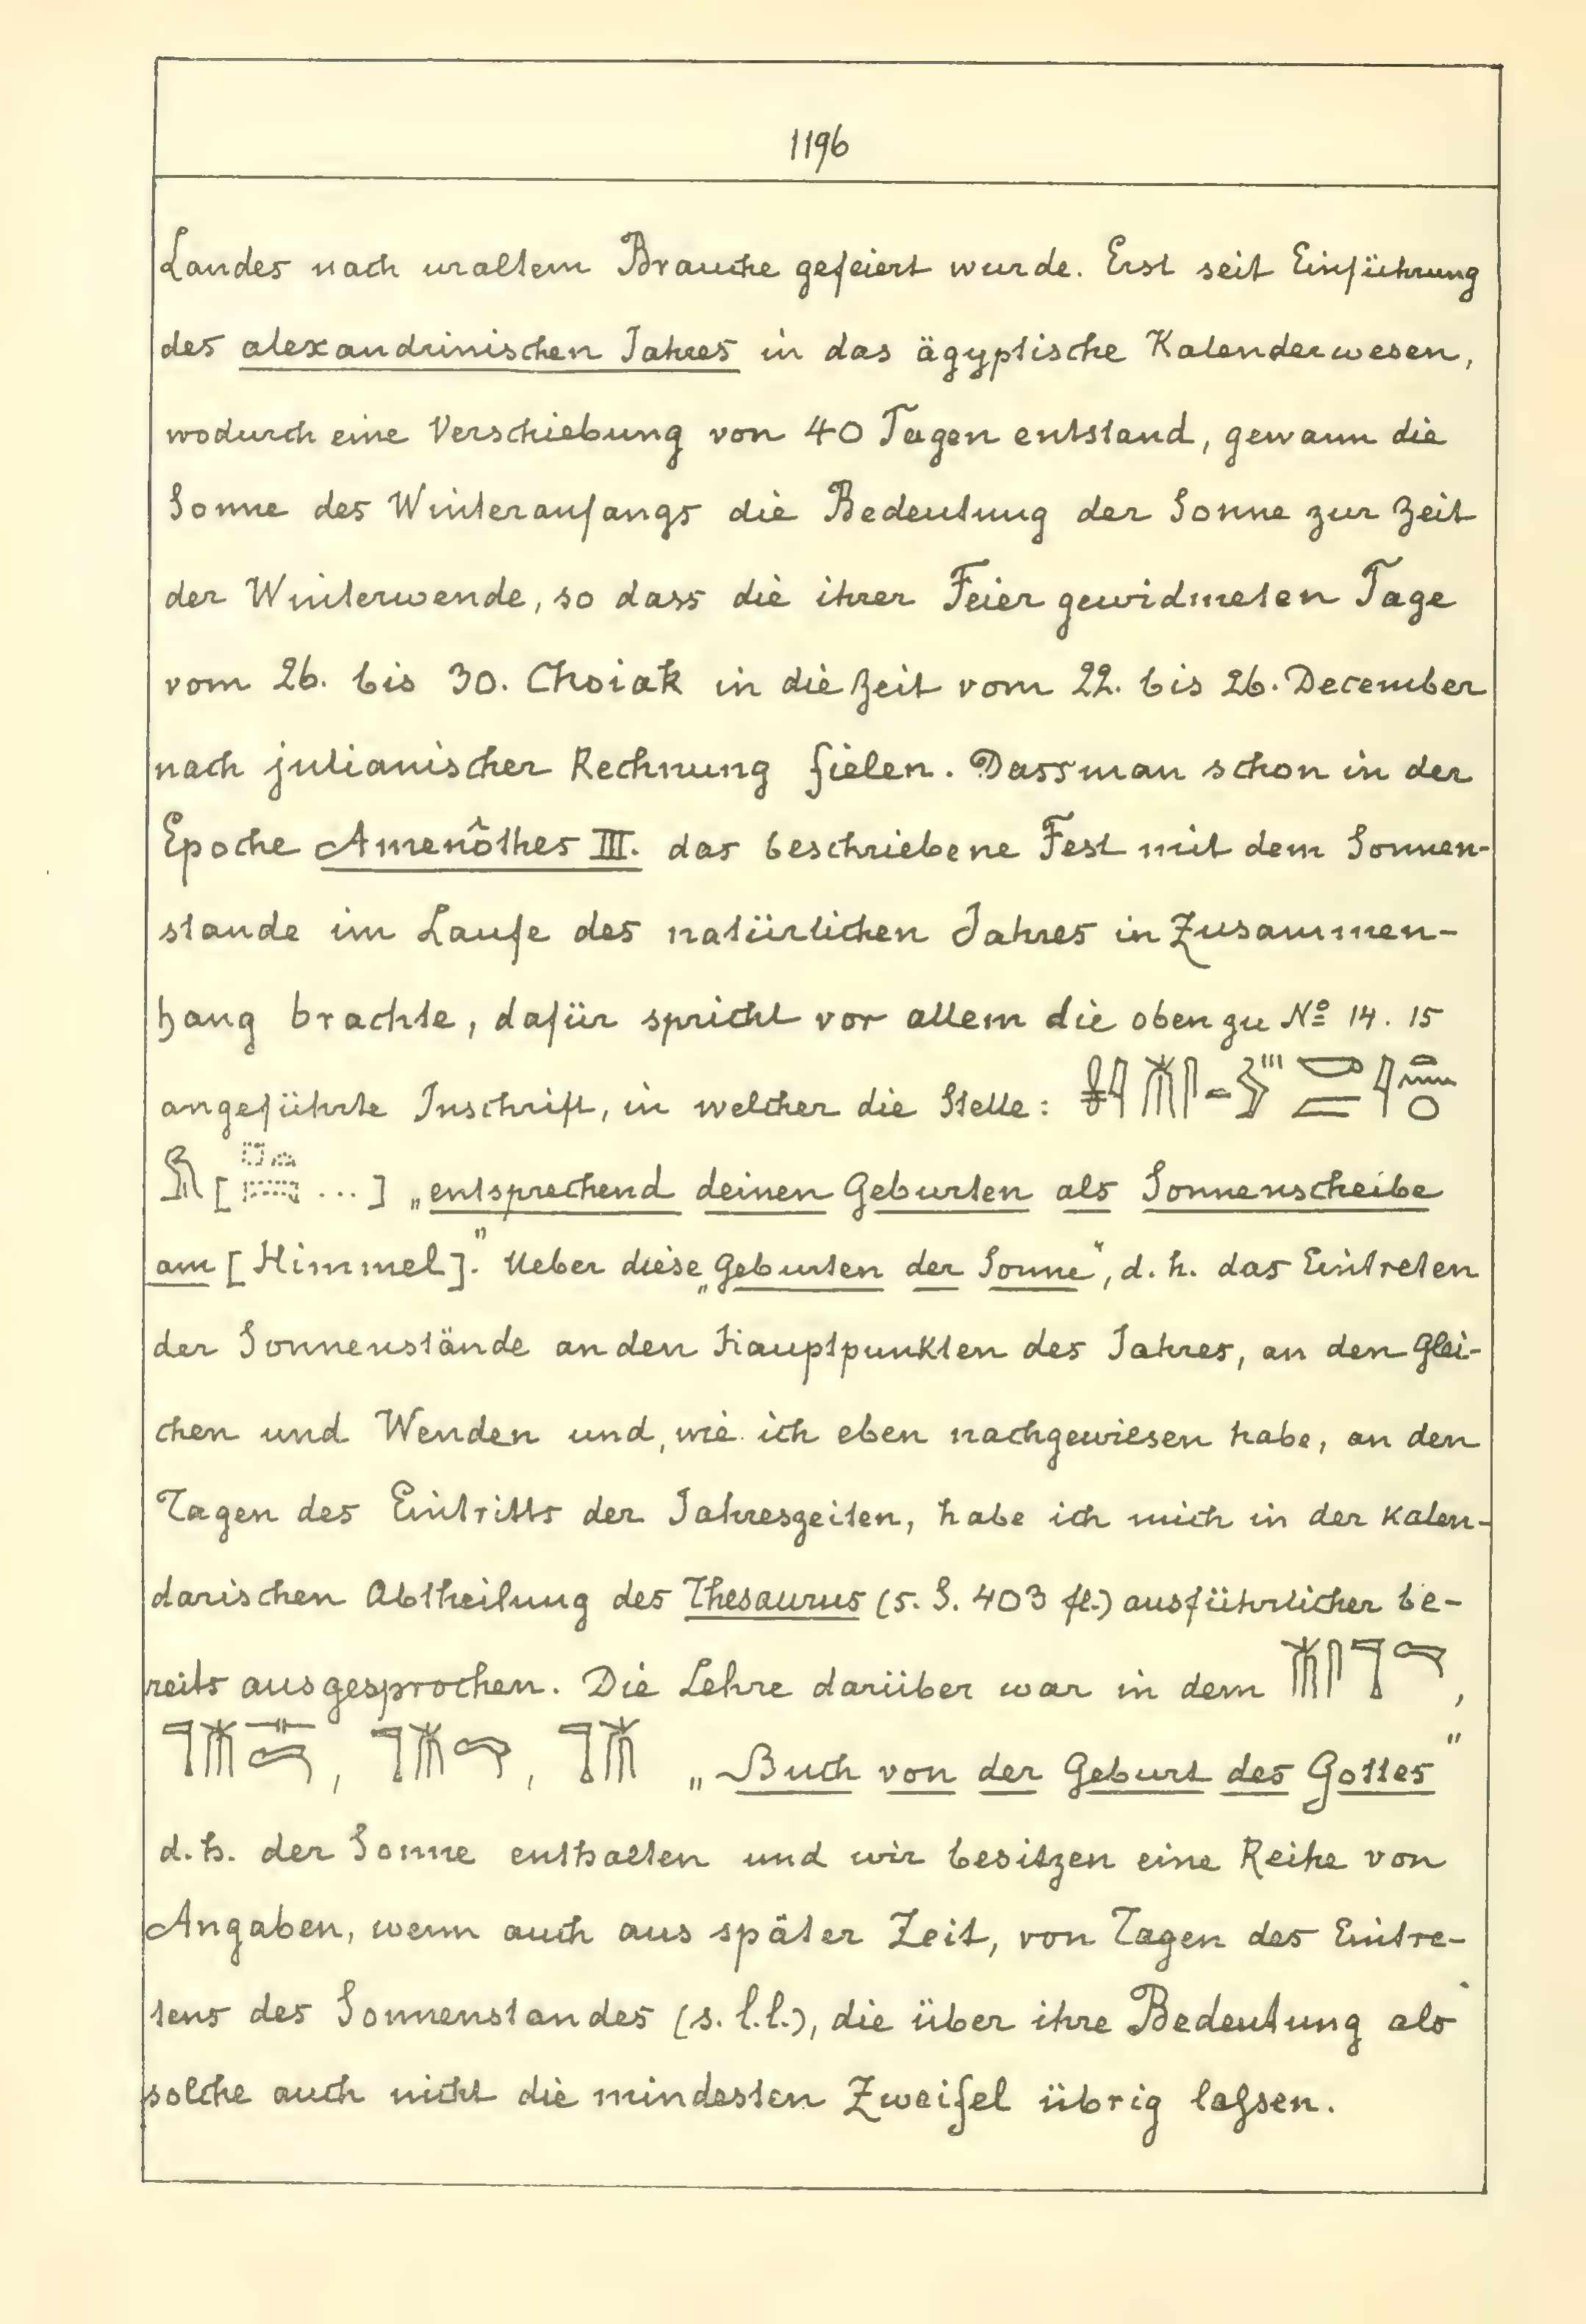 1196
Landes nach uraltem Brauche gefeiert wurde. Erst seit Einführung
des alexandrinischen Jahres in das ägyptische Kalenderwesen,
wodurch eine Verschiebung von 40 Tagen entstand, gewann die
Sonne des Winteranfangs die Bedeutung der Sonne zur Zeit
der Winterwende, so dass die ihrer Feier gewidmeten Tage
vom 26. bis 30. Choiak in die Zeit vom 22. bis 26. December
nach julianischer Rechnung fielen. Dass man schon in der
Epoche Amenôthes III. das beschriebene Fest mit dem Sonnen-
stande im Laufe des natürlichen Jahres in Zusammen-
hang brachte, dafür spricht vor allem die oben zu Nº 14. 15
angeführte Inschrift, in welcher die Stelle:
[...] „entsprechend deinen Geburten als Sonnenscheibe
am [Himmel]." Ueber diese „Geburten der Sonne", d. h. das Eintreten
der Sonnenstände an den Hauptpunkten des Jahres, an den Glei-
chen und Wenden und, wie ich eben nachgewiesen habe, an den
Tagen des Eintritts der Jahreszeiten, habe ich mich in der Kalen-
darischen Abtheilung des Thesaurus (s. S. 403 fl.) ausführlicher be-
reits ausgesprochen. Die Lehre darüber war in dem ,
, , „Buch von der Geburt des Gottes"
d. h. der Sonne enthalten und wir besitzen eine Reihe von
Angaben, wenn auch aus später Zeit, von Tagen des Eintre-
tens des Sonnenstandes (s. l. l.), die über ihre Bedeutung als
solche auch nicht die mindesten Zweifel übrig laſsen.